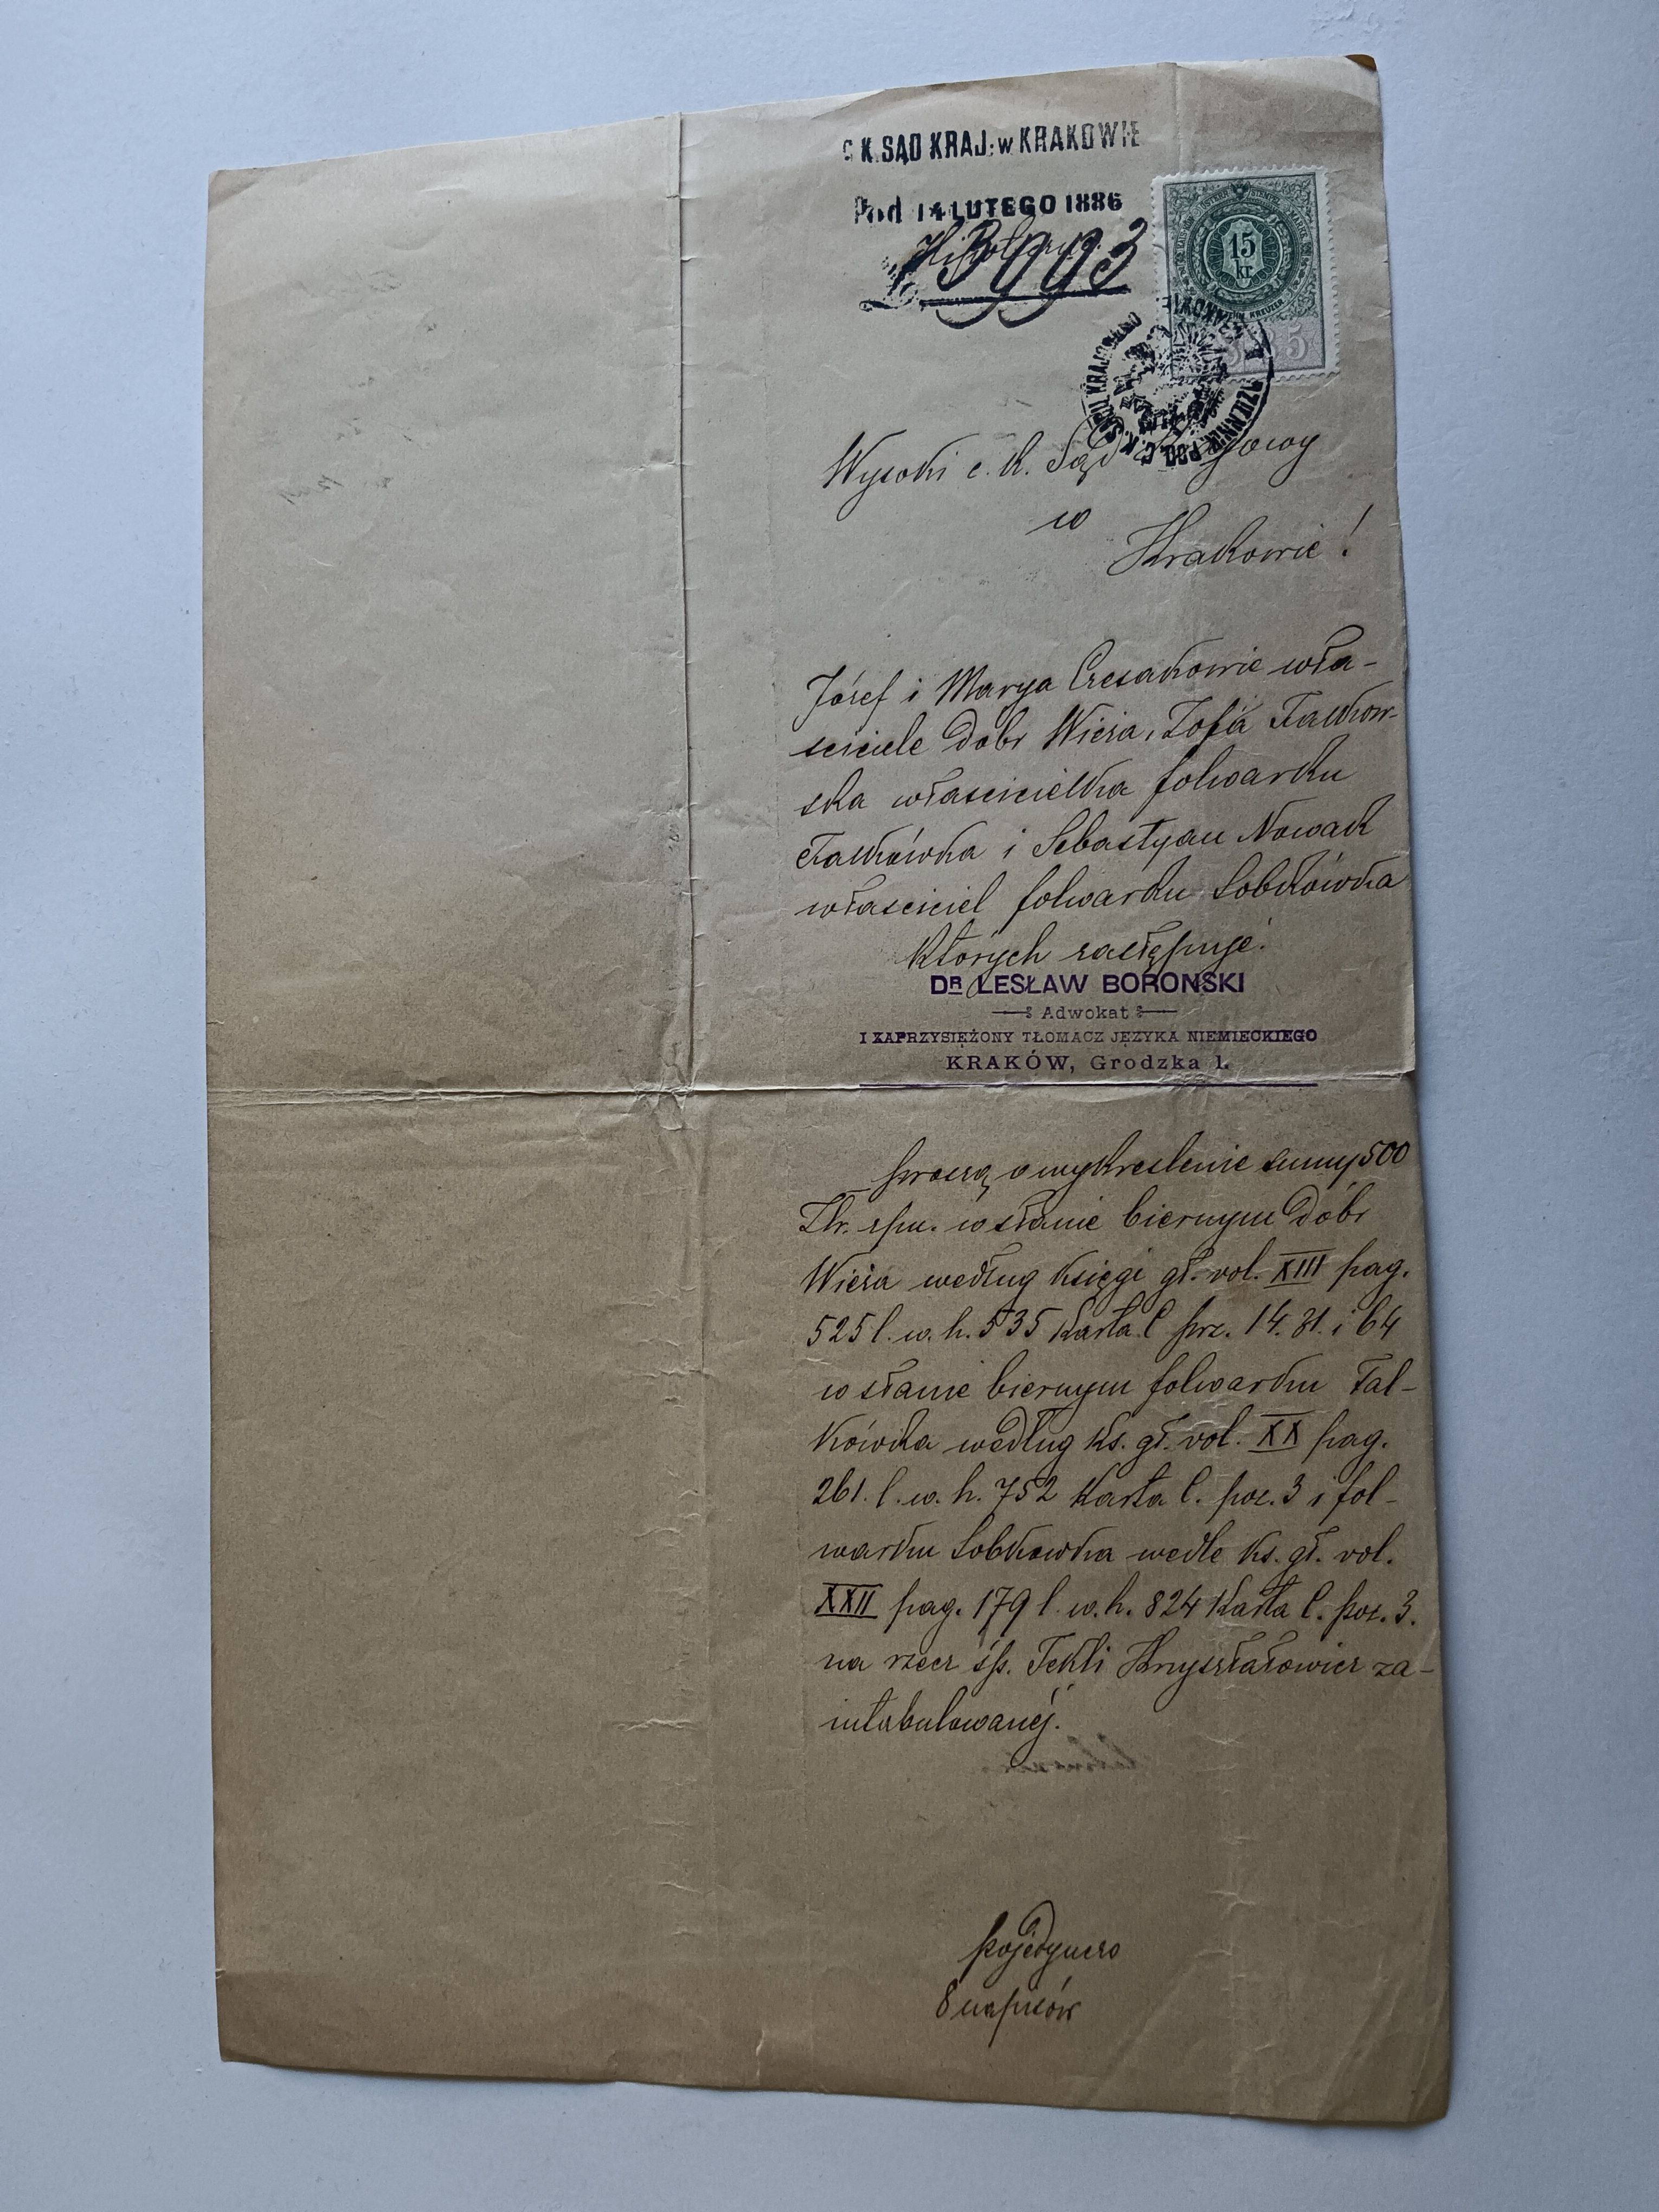 C K. SĄD KRAJ: w KRAKOWIE
Pod 14 LUTEGO 1886
3993
15
kr.
Wysoki c. k. Sąd Krajowy
w
Krakowie!
Józef i Marya Czesakowie wła-
sciciele dóbr Wieża, Zofia Falkow-
ska własicielka folwarku
Falkówka i Sebastyan Nowak
własciciel folwarku Sobkówka
których zastępuje.
DR LESŁAW BOROŃSKI
Adwokat
I ZAPRZYSIĘŻONY TŁOMACZ JĘZYKA NIEMIECKIEGO
KRAKÓW, Grodzka 1.
proszą o wykreslenie sumy 500
Złr. zpn. w stanie biernym dóbr
Wieża według księgi gł. vol. XIII pag.
525 l. w. h. 535 Karta C poz. 14. 31. i 64
w stanie biernym folwarku Fal-
kówka według ks. gł. vol. XX pag.
261. l. w. h. 752 Karta C. poz. 3 i fol-
warku Sobkowka wedle ks. gł. vol.
XXII pag. 179 l. w. h. 824 Karta C. poz. 3.
na rzecz śp. Tekli Krysztatowicz za-
intabulowanéj.
pojedynczo
8 napisów